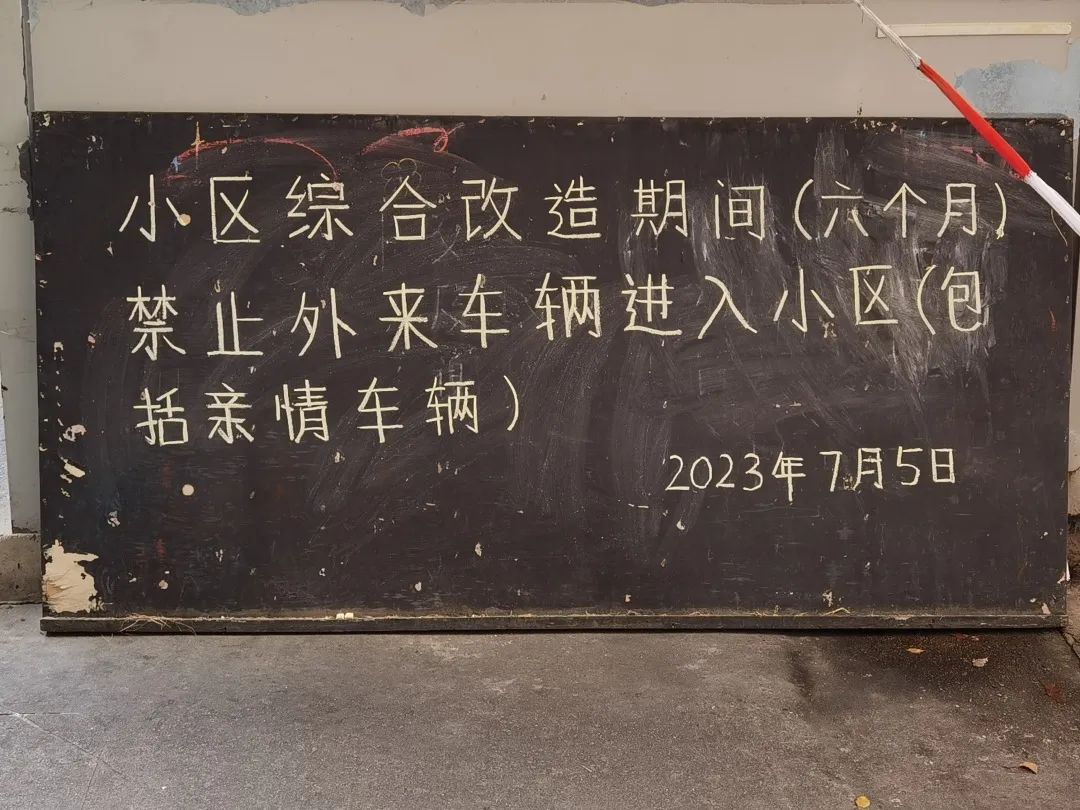 小区综合改造期间(六个月)
禁止外来车辆进入小区(包
括亲情车辆)
2023年7月5日